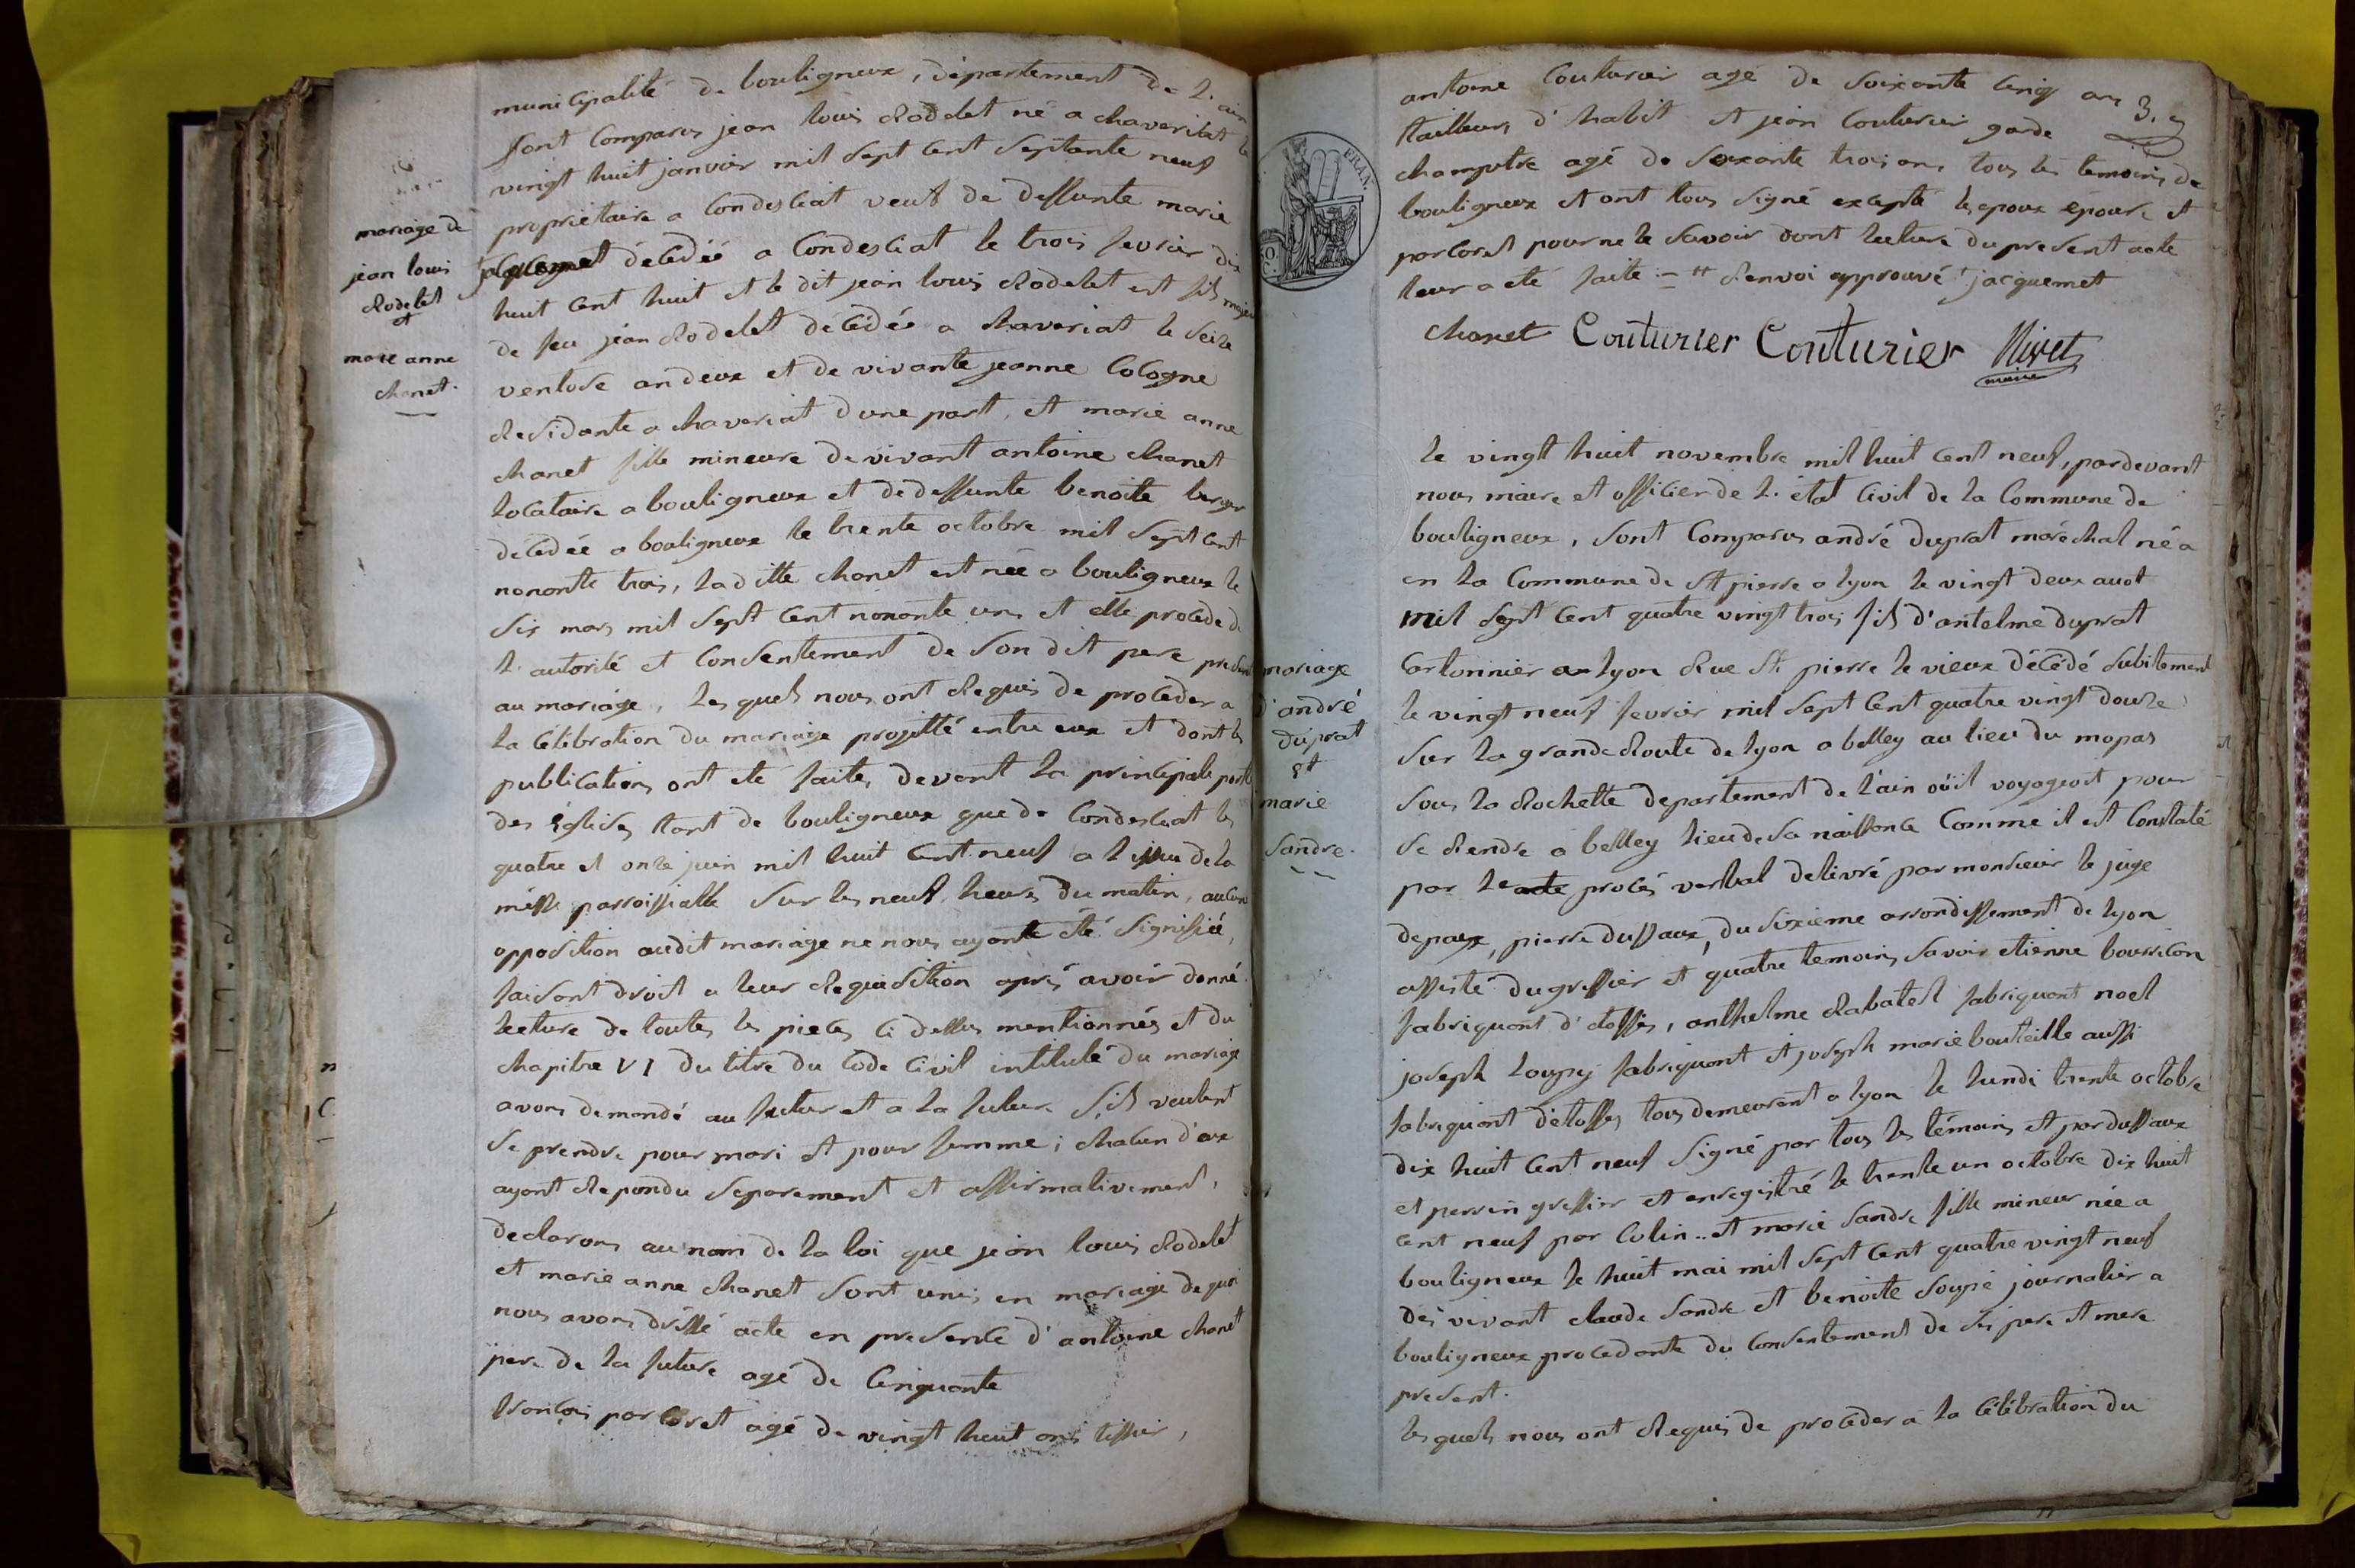 municipalité de bouligneux, département de l'ain
sont Comparus jean louis Rodelet né a chaveriat le
vingt huit janvier mil sept cent septante neuf
propriétaire a Condesciat veuf de deffunte marie
décédée a Condesciat le trois fevrier dix
huit cent huit et le dit jean louis Rodelet est fils majeur
de feu jean Rodelet décédée a chaveriat le seize
ventose an deux et de vivante jeanne Cologne
Residante a chaveriat d'une part, et marie anne
chanet fille mineure de vivant antoine chanet
locataire a bouligneux et de deffunte benoite berger
décédée a bouligneux le trente octobre mil sept cent
nonante trois, laditte chanet est née a bouligneux le
six mars mil sept cent nonante un, et elle procede de
l'autorité et Consentement de son dit pere present
au mariage, les quels nous ont Requis de proceder a
la Célébration du mariage projetté entre eux et dont les
publications ont eté faites devant la principale porte
des églises tant de bouligneux que de Condesciat les
quatre et onze juin mil huit cent neuf a l'issue de la
messe parroissialle sur les neuf heures du matin, aucune
opposition audit mariage ne nous ayante été signifiée,
faisant droit a leur Requisition aprés avoir donné
lecture de toutes les pieces ci dessus mentionnés et du
chapitre VI du titre du Code Civil intitulé du mariage
avons demandé au futur et a la future s'ils veulent
se prendre pour mari et pour femme; chacun d'eux
ayant Repondu separement et affirmativement,
declarons au nom de la loi que jean louis Rodelet
et marie anne chanet sont unis en mariage de quoi
nous avons dréssé acte en presence d'antoine chanet
pere de la future agé de Cinquante
françois par Coret agé de vingt huit ans tissier,
mariage de
jean louis
Rodelet
et
marie anne
chanet.
antoine Couturier agé de soixante cinq ans
3.e
tailleurs d'habit et jean Couturier garde
champetre agé de soixante trois ans tous les temoins de
bouligneux et ont tous signé excepté les epoux épouse et
par Coret pour ne le savoir dont lecture du present acte
leur a eté faite .- Renvoi approuvé + jacquemet
chanet Couturier Couturier Nivet
maire
le vingt huit novembre mil huit cent neuf, pardevant
nous maire et officier de l'état Civil de la Commune de
bouligneux, sont Comparus andré duprat maréchal né a
en la Commune de St pierre a lyon le vingt deux auot
mil sept cent quatre vingt trois fils d'antelme duprat
Cartonnier a lyon Rue St pierre le vieux décédé subitement
le vingt neuf fevrier mil sept cent quatre vingt douze
sur la grande Route de lyon a belley au lieu du mapas
sous la Rochette departement de l'ain où il voyageoit pour
se Rendre a belley lieu de sa naissance Comme il est Constaté
par le acte procés verbal delivré par monsieur le juge
de paix, pierre dussaux, du sixieme arrondissement de lyon
assisté du greffier et quatre temoins savoir etienne bourricon
fabriquant d'étoffes, anthelme Rabatel fabriquant noel
joseph loupy fabriquant et joseph marie bouteille aussi
fabriquant d'étoffes tous demeurant a lyon le lundi trente octobre
dix huit cent neuf signé par tous les témoins et par dussaux
et perrin greffier et enregistré le trente un octobre dix huit
cent neuf par Colin .. et marie sandre fille mineur née a
bouligneux le huit mai mil sept cent quatre vingt neuf
des vivant claude sandre et benoite soupé journalier a
bouligneux procedante du consentement de ses pere et mere
present.
les quels nous ont Requis de proceder a la Célébration du
mariage
d'andré
duprat
et
marie
sandre.